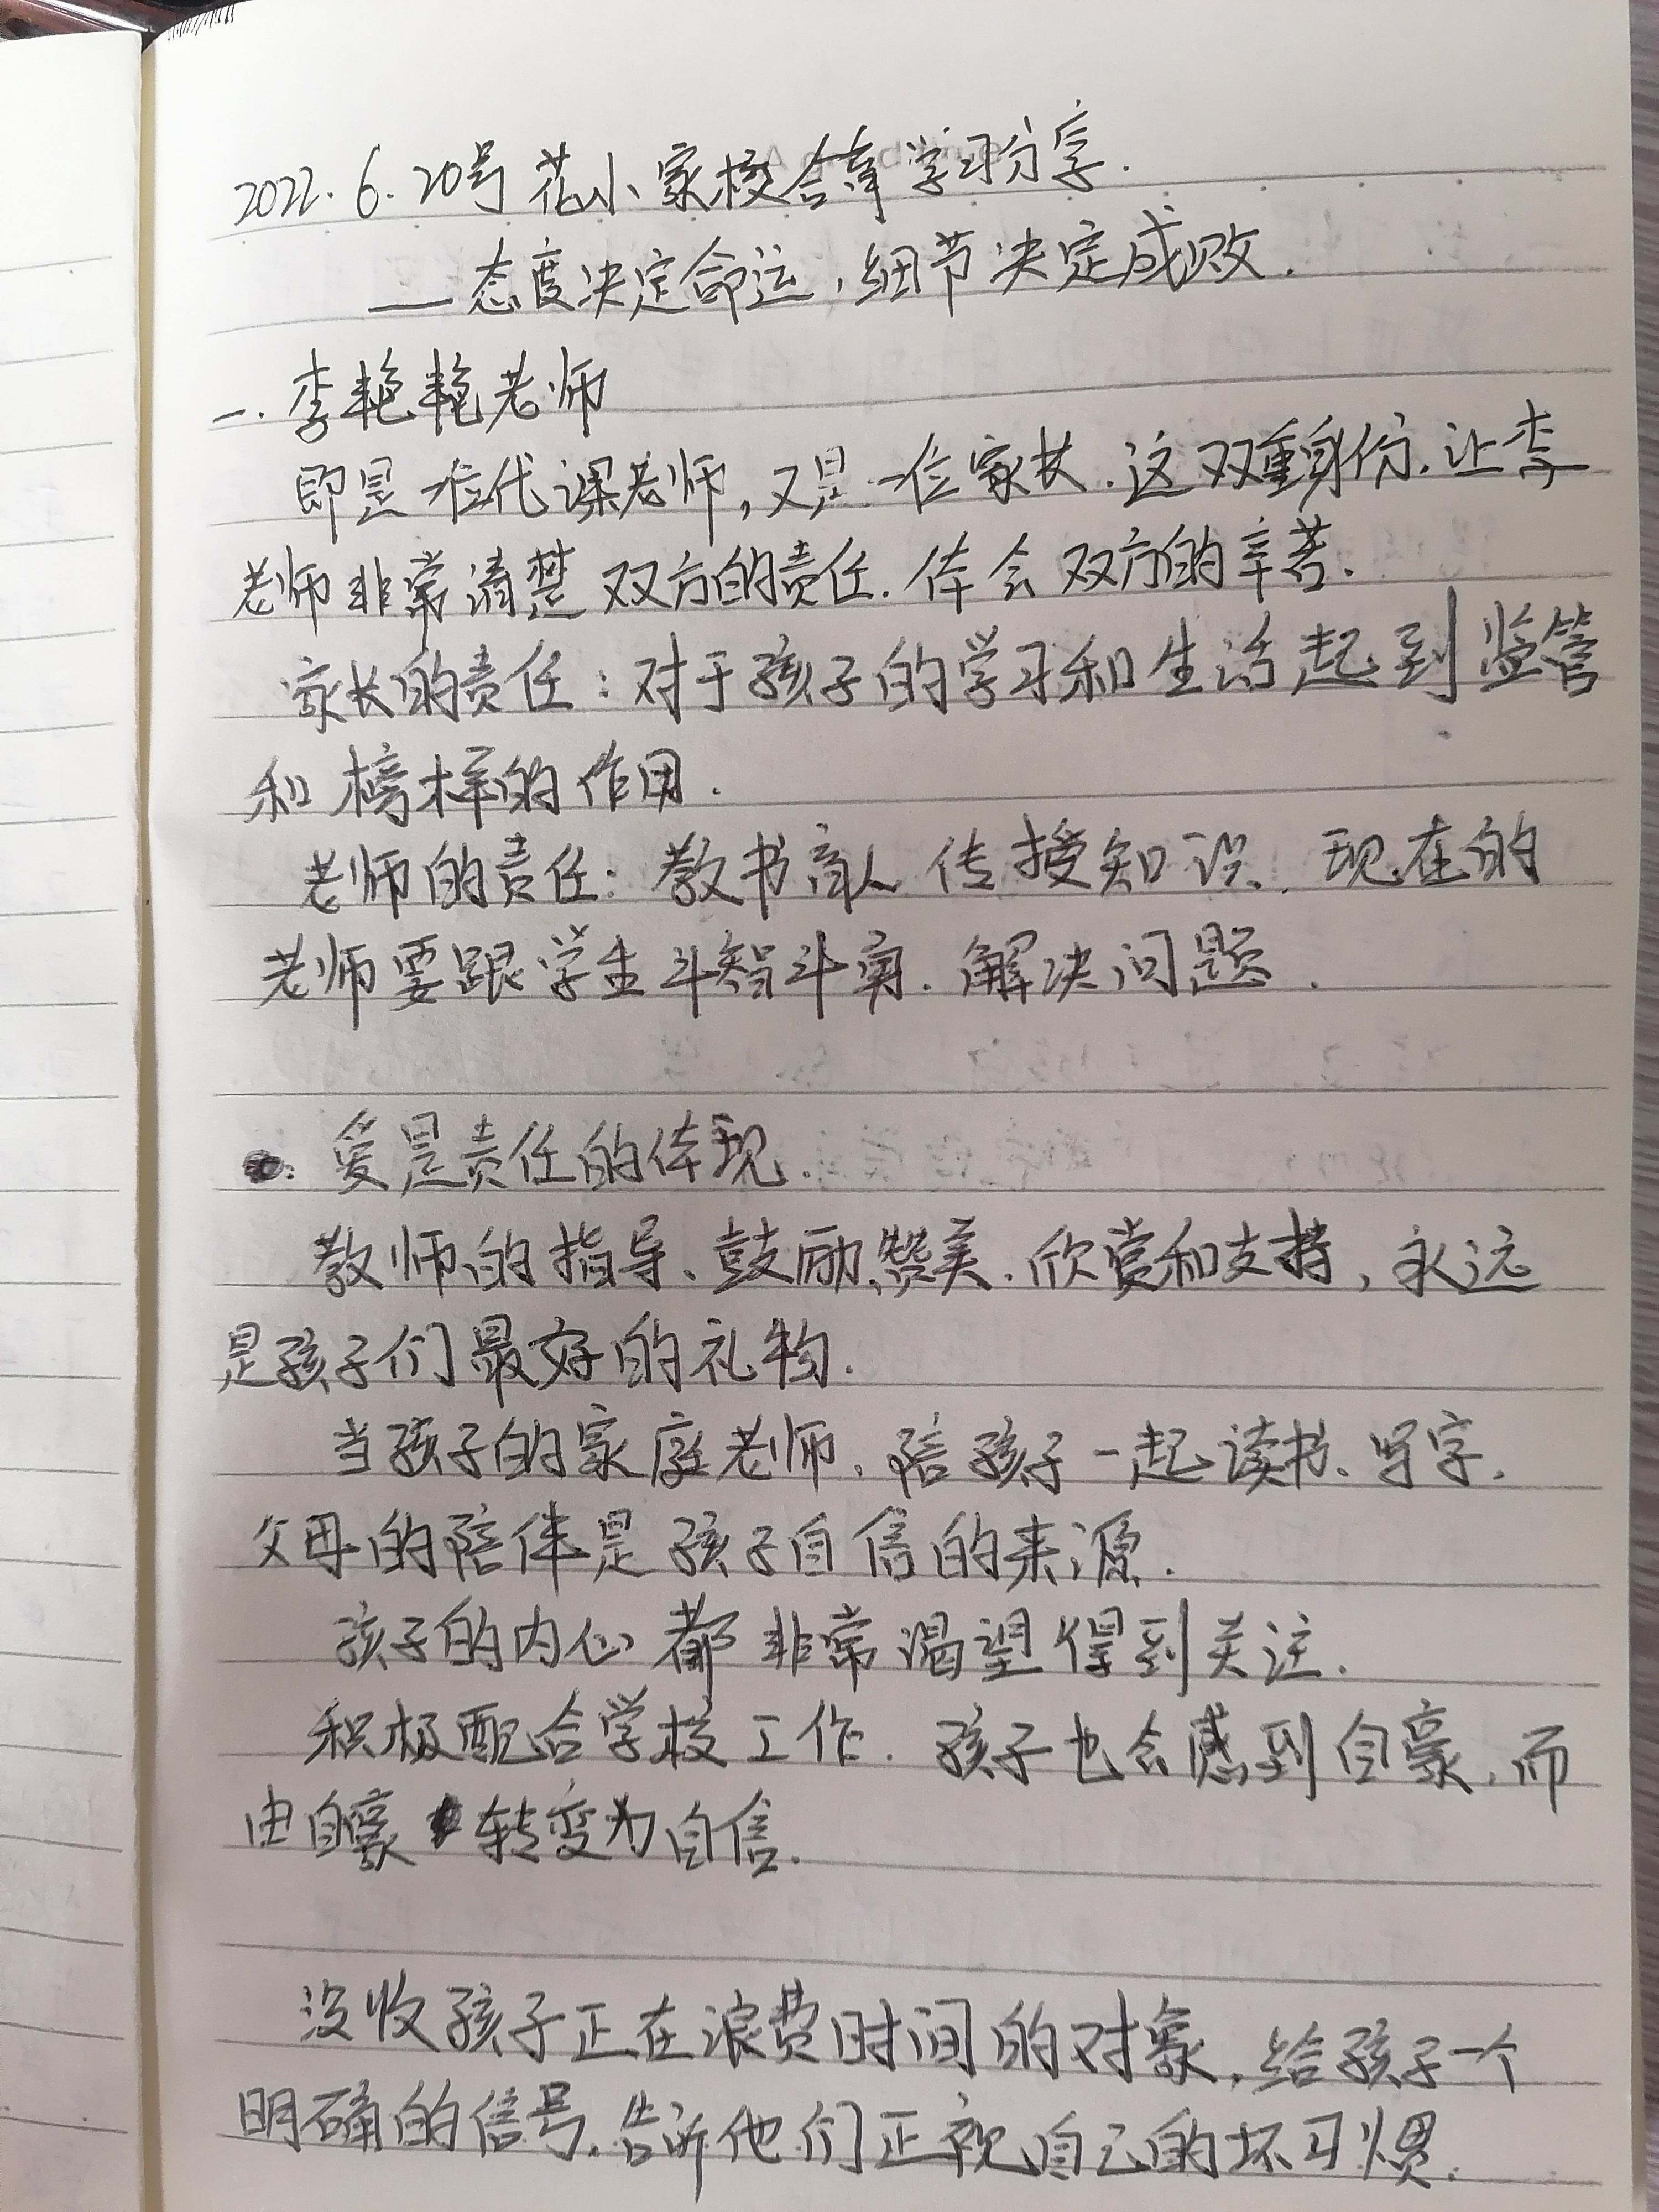 2022.6.20号花小家校合育学习分享.
——态度决定命运,细节决定成败.
一.李艳艳老师
即是一位代课老师,又是一位家长.这双重身份.让李
老师非常清楚双方的责任.体会双方的辛苦.
家长的责任:对于孩子的学习和生活起到监管
和榜样的作用.
老师的责任:教书育人 传授知识.现在的
老师要跟学生斗智斗勇.解决问题.
爱是责任的体现.
教师的指导、鼓励、赞美.欣赏和支持,永远
是孩子们最好的礼物.
当孩子的家庭老师.陪孩子一起读书、写字.
父母的陪伴是孩子自信的来源.
孩子的内心都非常渴望得到关注.
积极配合学校工作.孩子也会感到自豪,而
由自豪转变为自信.
没收孩子正在浪费时间的对象,给孩子一个
明确的信号.告诉他们正视自己的坏习惯.